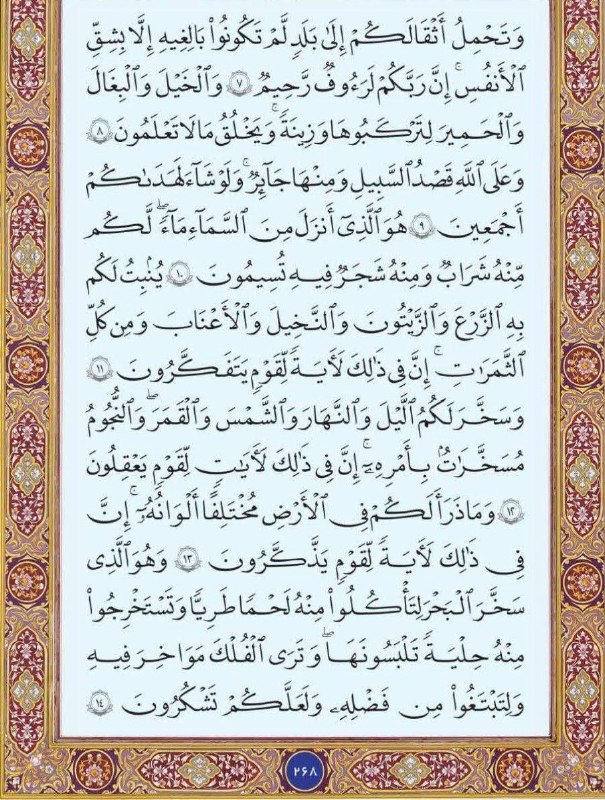 وَتَحۡمِلُ أَثۡقَالَكُمۡ إِلَىٰ بَلَدٖ لَّمۡ تَكُونُواْ بَٰلِغِيهِ إِلَّا بِشِقِّ
ٱلۡأَنفُسِۚ إِنَّ رَبَّكُمۡ لَرَءُوفٞ رَّحِيمٞ ٧ وَٱلۡخَيۡلَ وَٱلۡبِغَالَ
وَٱلۡحَمِيرَ لِتَرۡكَبُوهَا وَزِينَةٗۚ وَيَخۡلُقُ مَا لَا تَعۡلَمُونَ ٨
وَعَلَى ٱللَّهِ قَصۡدُ ٱلسَّبِيلِ وَمِنۡهَا جَآئِرٞۚ وَلَوۡ شَآءَ لَهَدَىٰكُمۡ
أَجۡمَعِينَ ٩ هُوَ ٱلَّذِيٓ أَنزَلَ مِنَ ٱلسَّمَآءِ مَآءٗۖ لَّكُم
مِّنۡهُ شَرَابٞ وَمِنۡهُ شَجَرٞ فِيهِ تُسِيمُونَ ١٠ يُنۢبِتُ لَكُم
بِهِ ٱلزَّرۡعَ وَٱلزَّيۡتُونَ وَٱلنَّخِيلَ وَٱلۡأَعۡنَٰبَ وَمِن كُلِّ
ٱلثَّمَرَٰتِۚ إِنَّ فِي ذَٰلِكَ لَأٓيَةٗ لِّقَوۡمٖ يَتَفَكَّرُونَ ١١
وَسَخَّرَ لَكُمُ ٱلَّيۡلَ وَٱلنَّهَارَ وَٱلشَّمۡسَ وَٱلۡقَمَرَۖ وَٱلنُّجُومُ
مُسَخَّرَٰتُۢ بِأَمۡرِهِۦٓۚ إِنَّ فِي ذَٰلِكَ لَأٓيَٰتٖ لِّقَوۡمٖ يَعۡقِلُونَ
١٢ وَمَا ذَرَأَ لَكُمۡ فِي ٱلۡأَرۡضِ مُخۡتَلِفًا أَلۡوَٰنُهُۥٓۚ إِنَّ
فِي ذَٰلِكَ لَأٓيَةٗ لِّقَوۡمٖ يَذَّكَّرُونَ ١٣ وَهُوَ ٱلَّذِي
سَخَّرَ ٱلۡبَحۡرَ لِتَأۡكُلُواْ مِنۡهُ لَحۡمٗا طَرِيّٗا وَتَسۡتَخۡرِجُواْ
مِنۡهُ حِلۡيَةٗ تَلۡبَسُونَهَاۖ وَتَرَى ٱلۡفُلۡكَ مَوَاخِرَ فِيهِ
وَلِتَبۡتَغُواْ مِن فَضۡلِهِۦ وَلَعَلَّكُمۡ تَشۡكُرُونَ ١٤
٢٦٨